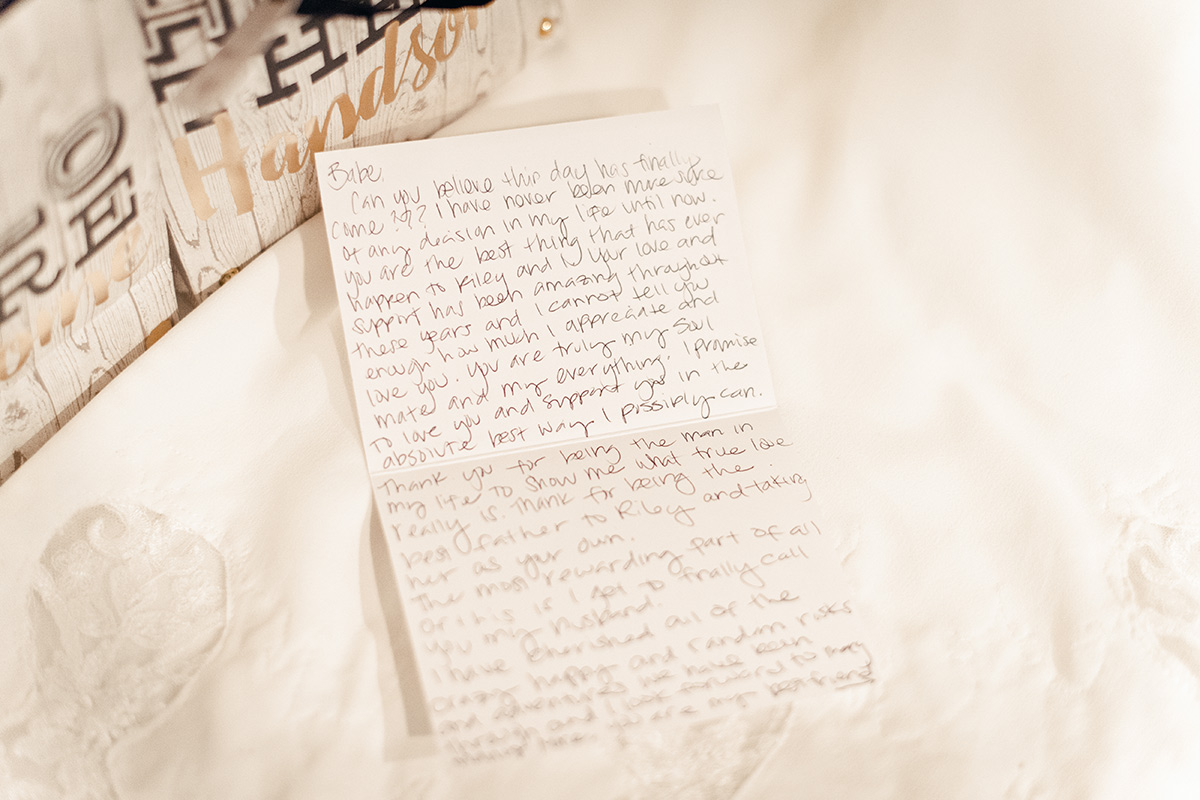 HE
Handso
O
RE
Babe,
Can you believe this day has finally
come??? I have never been more sure
of any decision in my life until now.
You are the best thing that has ever
happen to Riley and I. Your love and
support has been amazing throughout
these years and I cannot tell you
enough how much I appreciate and
love you. You are truly my soul
mate and my everything. I promise
to love you and support you in the
absolute best way I possibly can.
Thank you for being the man in
my life to show me what true love
really is. Thank for being the
best father to Riley and taking
her as your own.
The most rewarding part of all
of this is I get to finally call
you my husband.
I have cherished all of the
crazy happy and random risks
and adventures we have been
through and I look forward to many
more. You are my bestfriend